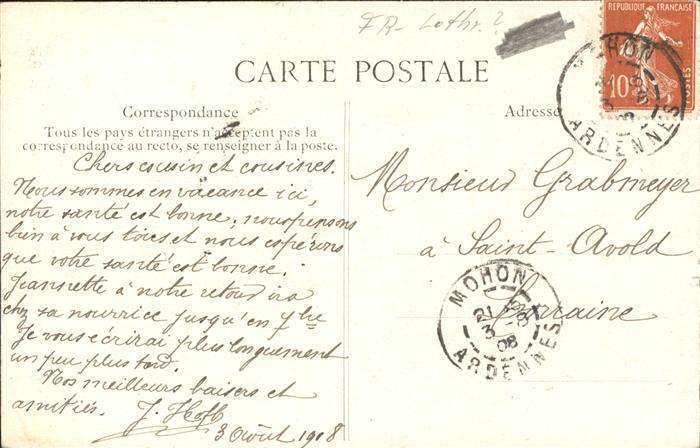 FR- Lothr. ?
REPUBLIQUE FRANÇAISE
10
POSTES
MOHON
ARDENNES
CARTE POSTALE
Correspondance
Tous les pays étrangers n'acceptent pas la
correspondance au recto, se renseigner à la poste.
Adresse
Chers cousin et cousines.
Nous sommes en vacance ici,
notre santé est bonne, nous pensons
bien à vous tous et nous espérons
que votre santé est bonne.
Jeannette à notre retour ira
chez sa nourrice jusqu'en 7bre
Je vous écrirai plus longuement
un peu plus tard.
Nos meilleurs baisers et
amitiés.
3 août 1908
Monsieur Grabmeyer
à Saint-Avold
Lorraine
MOHON
21
3 -8
08
ARDENNES